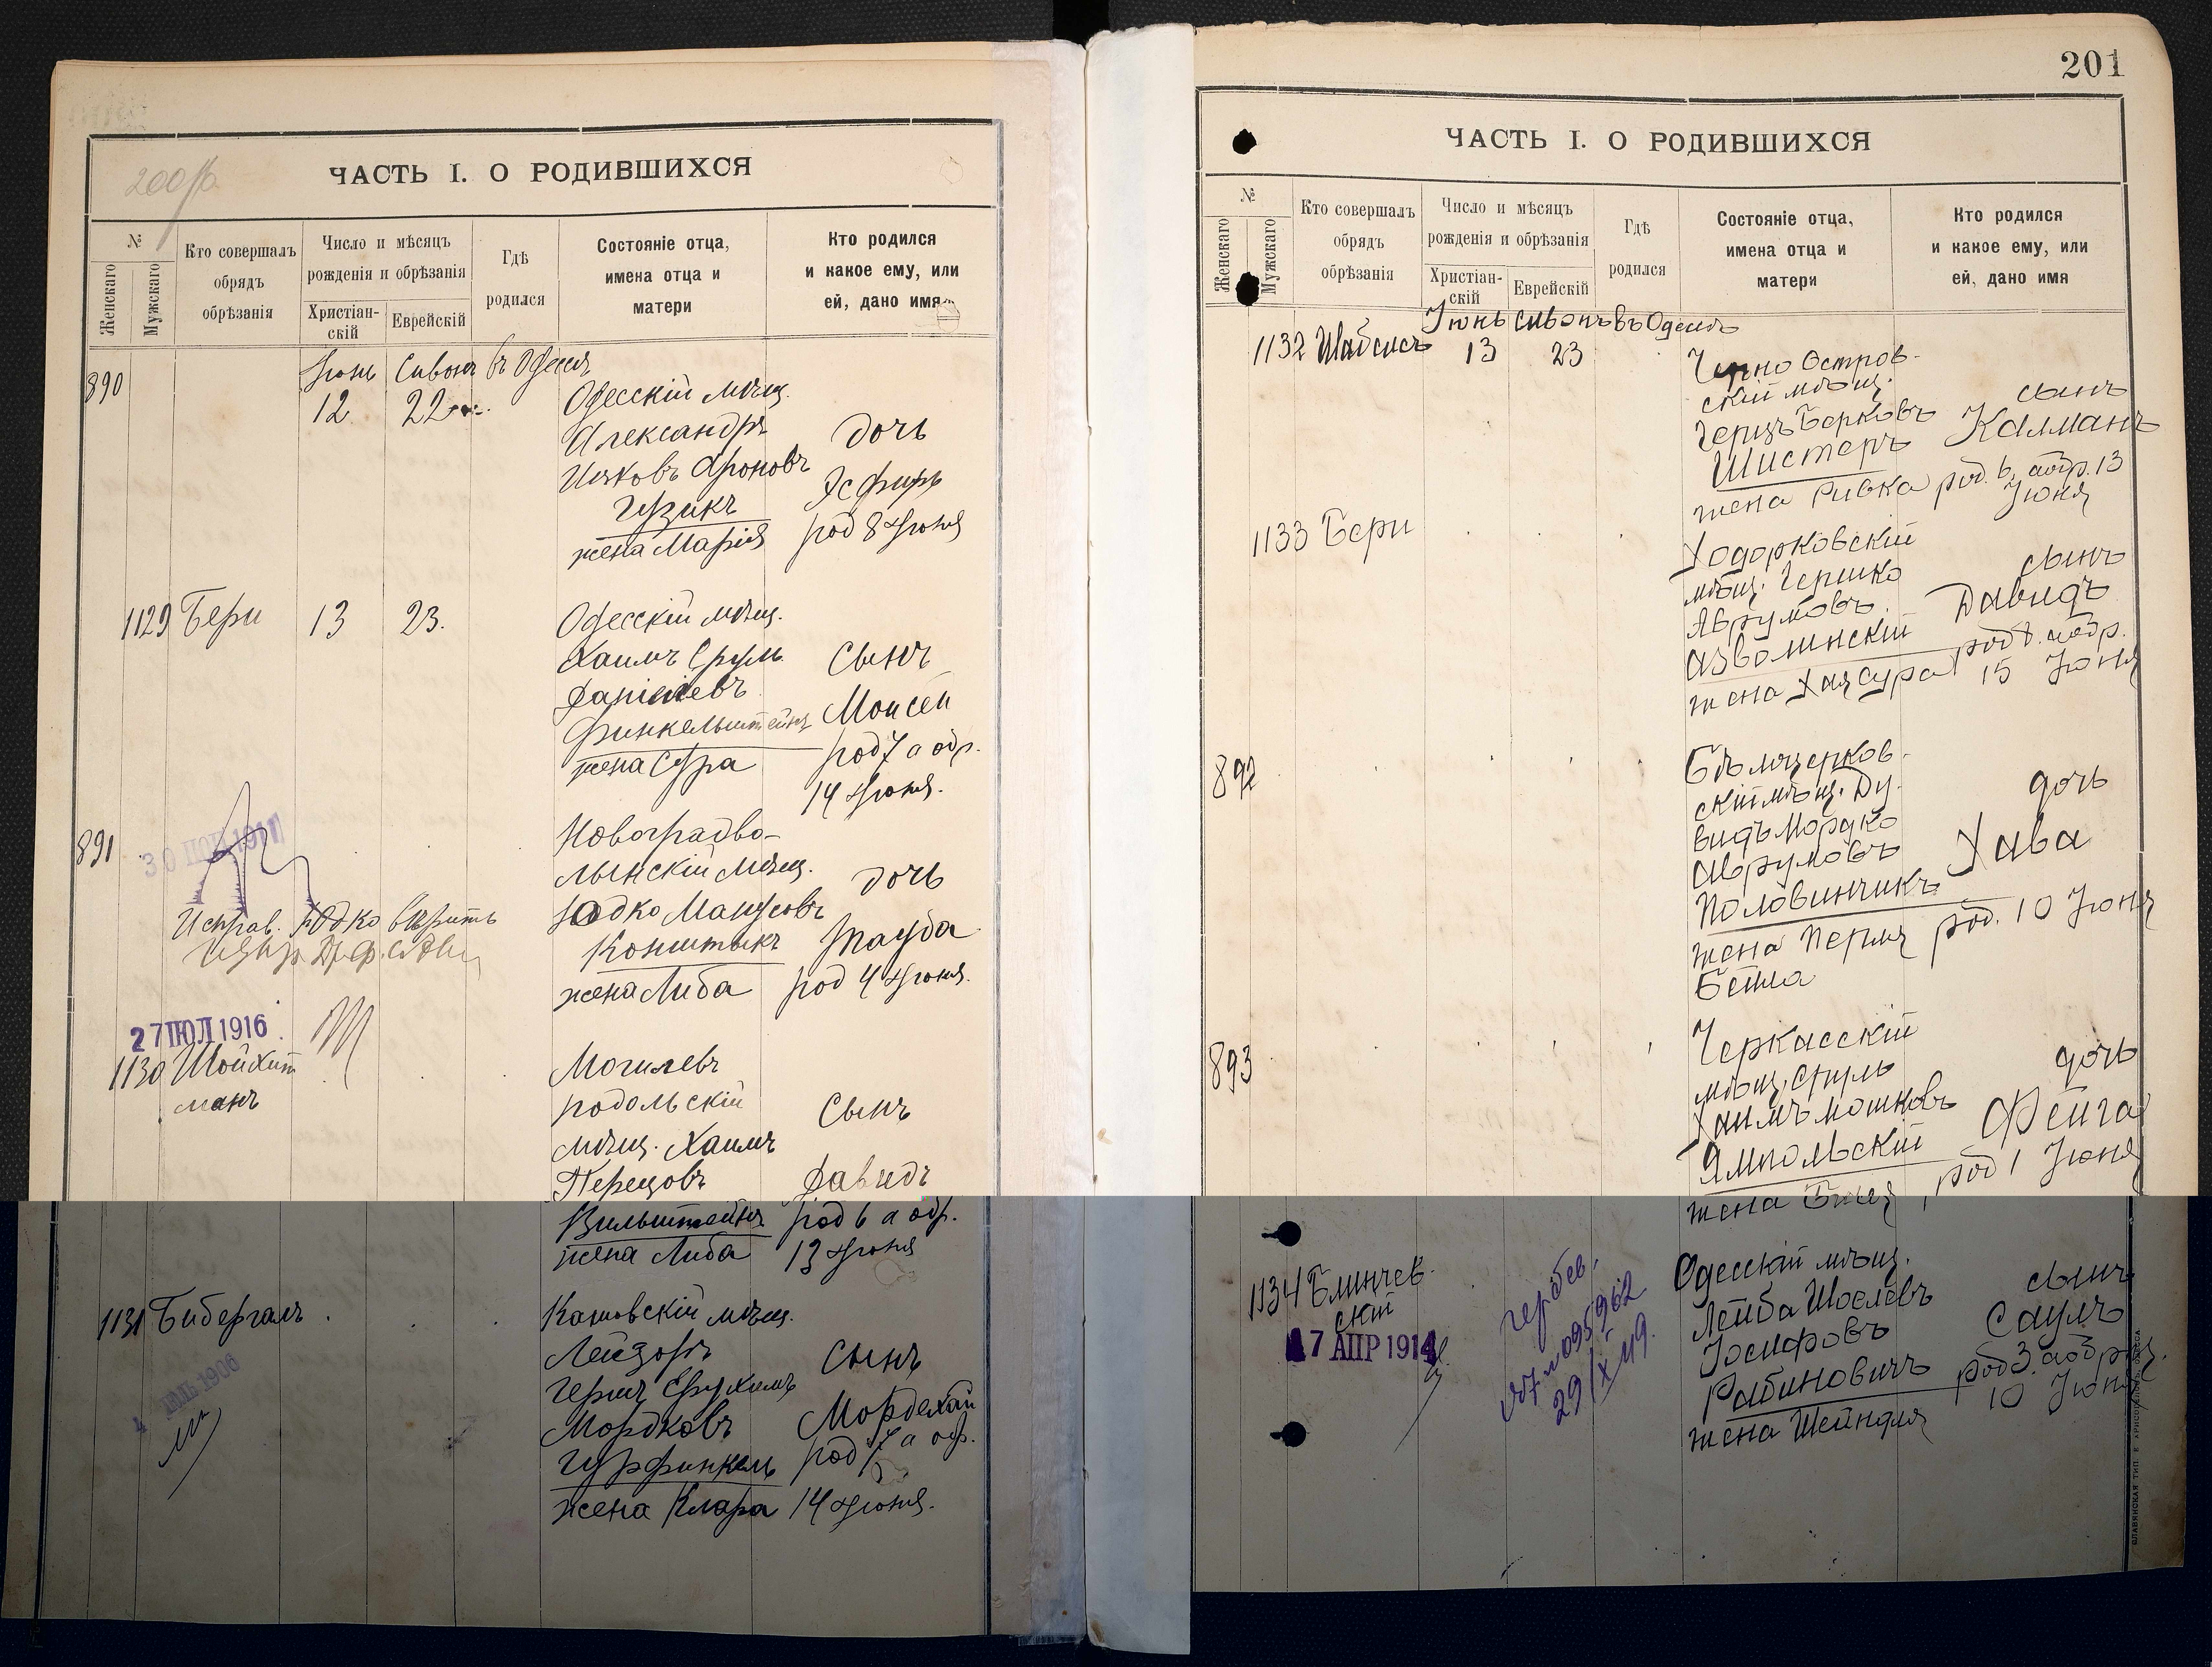 200 об
ЧАСТЬ I. О РОДИВШИХСЯ
№
Женскаго
Мужскаго
Кто совершалъ
обрядъ
обрѣзанія
Число и мѣсяцъ
рожденія и обрѣзанія
Христіан-
скій
Еврейскій
Гдѣ
родился
Состояніе отца,
имена отца и
матери
Кто родился
и какое ему, или
ей, дано имя
Іюнь Сивонъ въ Одессѣ
890
12 22
Одесскій мѣщ.
Александръ
Ияковъ Ароновъ
Гузикъ
жена Марія
дочь
Эсфирь
род 8 Іюня
1129 Бери 13 23.
Одесскій мѣщ.
Хаимъ Сруль
Даніелевъ
Финкельштейнъ
жена Сура
Сынъ
Моисей
род 7 а обр.
14 Іюня.
891
30 1911
Исправ. Юдко вѣрить
Новоградво-
лынскій мѣщ.
Юдко Манусовъ
Конштыкъ
жена Либа
дочь
Тауба
род 4 Іюня.
27 ІЮЛ 1916
1130 Шойхит
манъ
Могилевъ
подольскій
мѣщ. Хаимъ
Перецовъ
Вильштейнъ
жена Либа
Сынъ
Давидъ
род 6 а обр.
13 Іюня
1131 Бибергалъ
4 1906
мѣщ.
Лейзоръ
Гершъ Срухимъ
Мордковъ
Гурфинкель
жена Клара
Сынъ
Мордехай
род 7 а обр.
14 Іюня.
201
ЧАСТЬ I. О РОДИВШИХСЯ
№
Женскаго
Мужскаго
Кто совершалъ
обрядъ
обрѣзанія
Число и мѣсяцъ
рожденія и обрѣзанія
Христіан-
скій
Еврейскій
Гдѣ
родился
Состояніе отца,
имена отца и
матери
Кто родился
и какое ему, или
ей, дано имя
Іюнь Сивонъ въ Одессѣ
1132 Шабсисъ 13 23
Черно Остров-
скій мѣщ.
Герцъ Берковъ
Шистеръ
жена Ривка
сынъ
Калманъ
род. 6, а обр. 13
Іюня
1133 Бери
Ходорковскій
мѣщ. Гершко
Аврумовъ
Азволинскій
жена Хая Сура
сынъ
Давидъ
род 8. а обр.
15 Іюня
892
Бѣлоцерков-
скій мѣщ. Ду-
видъ Мордко
Аврумовъ
Половинчикъ
жена Перля
Бейла
дочь
Хава
род. 10 Іюня
893
Черкасскій
мѣщ. Сруль
Хаимъ Мошковъ
Ямпольскій
жена
дочь
Фейга
род 1 Іюня
1134 Блинчев-
скій
17 АПР 1914
гербов.
№ 095962
29/X 19.
Одесскій мѣщ.
Лейба Шоелевъ
Іосифовъ
Рабиновичъ
жена Шейндля
сынъ
Саулъ
род 3. а обр.
10 Іюня
СЛАВЯНСКАЯ ТИП.